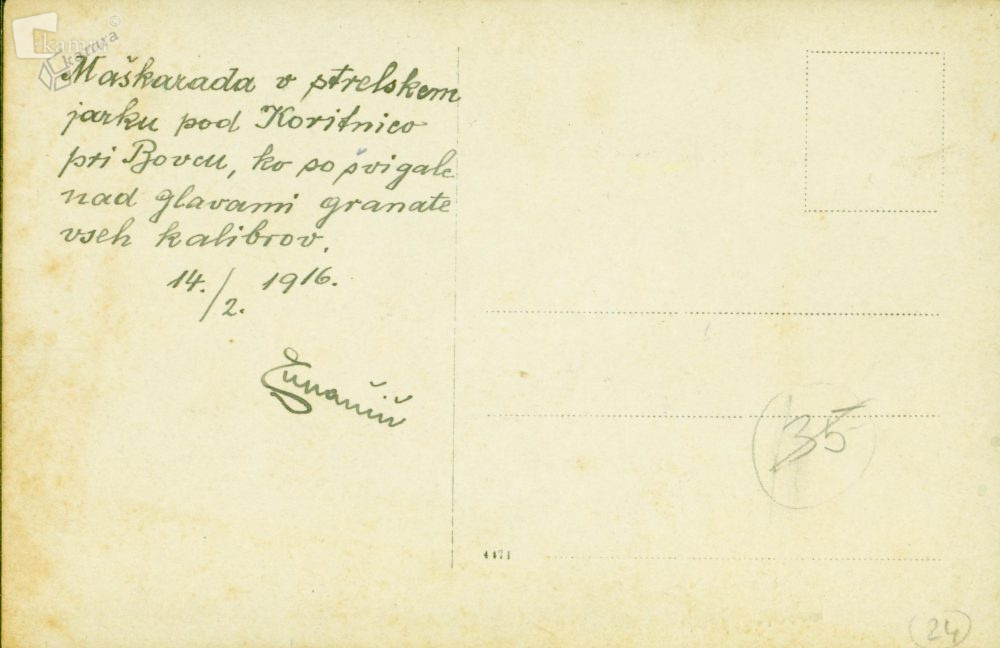 kamra
kamra
Maškarada v strelskem
jarku pod Koritnico
pri Bovcu, ko so švigale
nad glavami granate
vseh kalibrov.
14./2. 1916.
35
4471
24